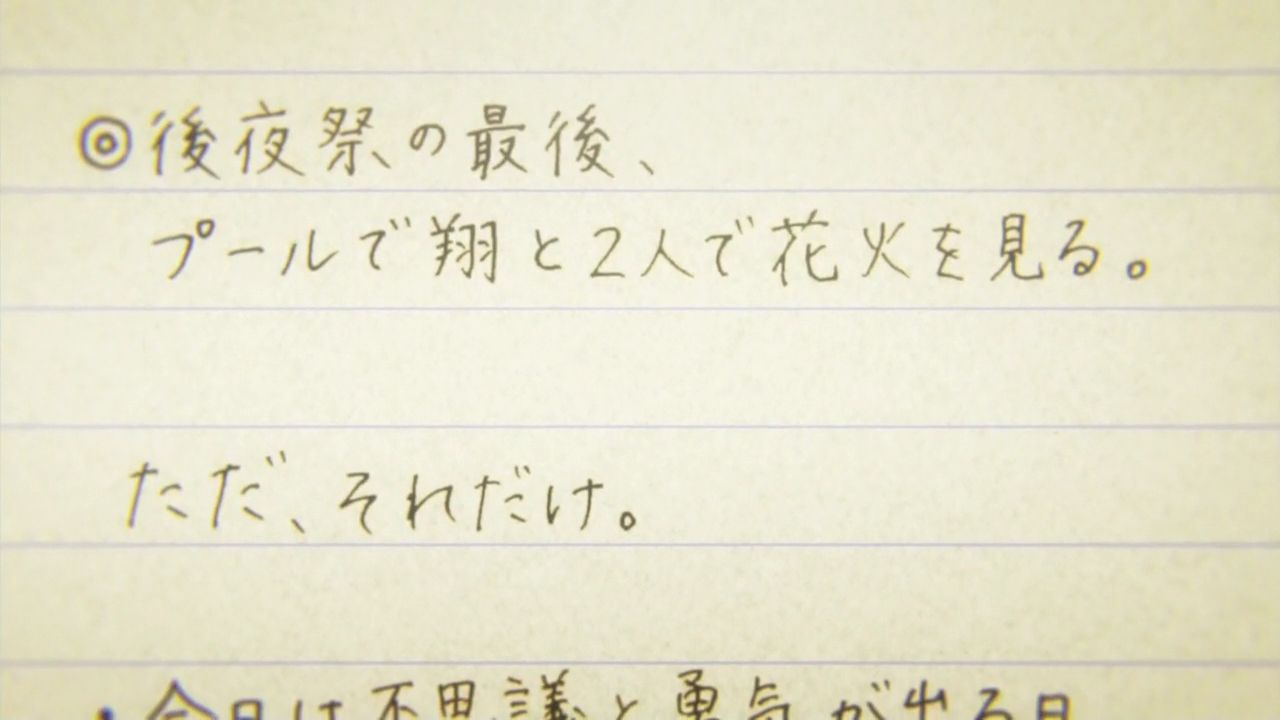 ◎後夜祭の最後、
プールで翔と2人で花火を見る。
ただ、それだけ。
・今日は不思議と勇気が出る日